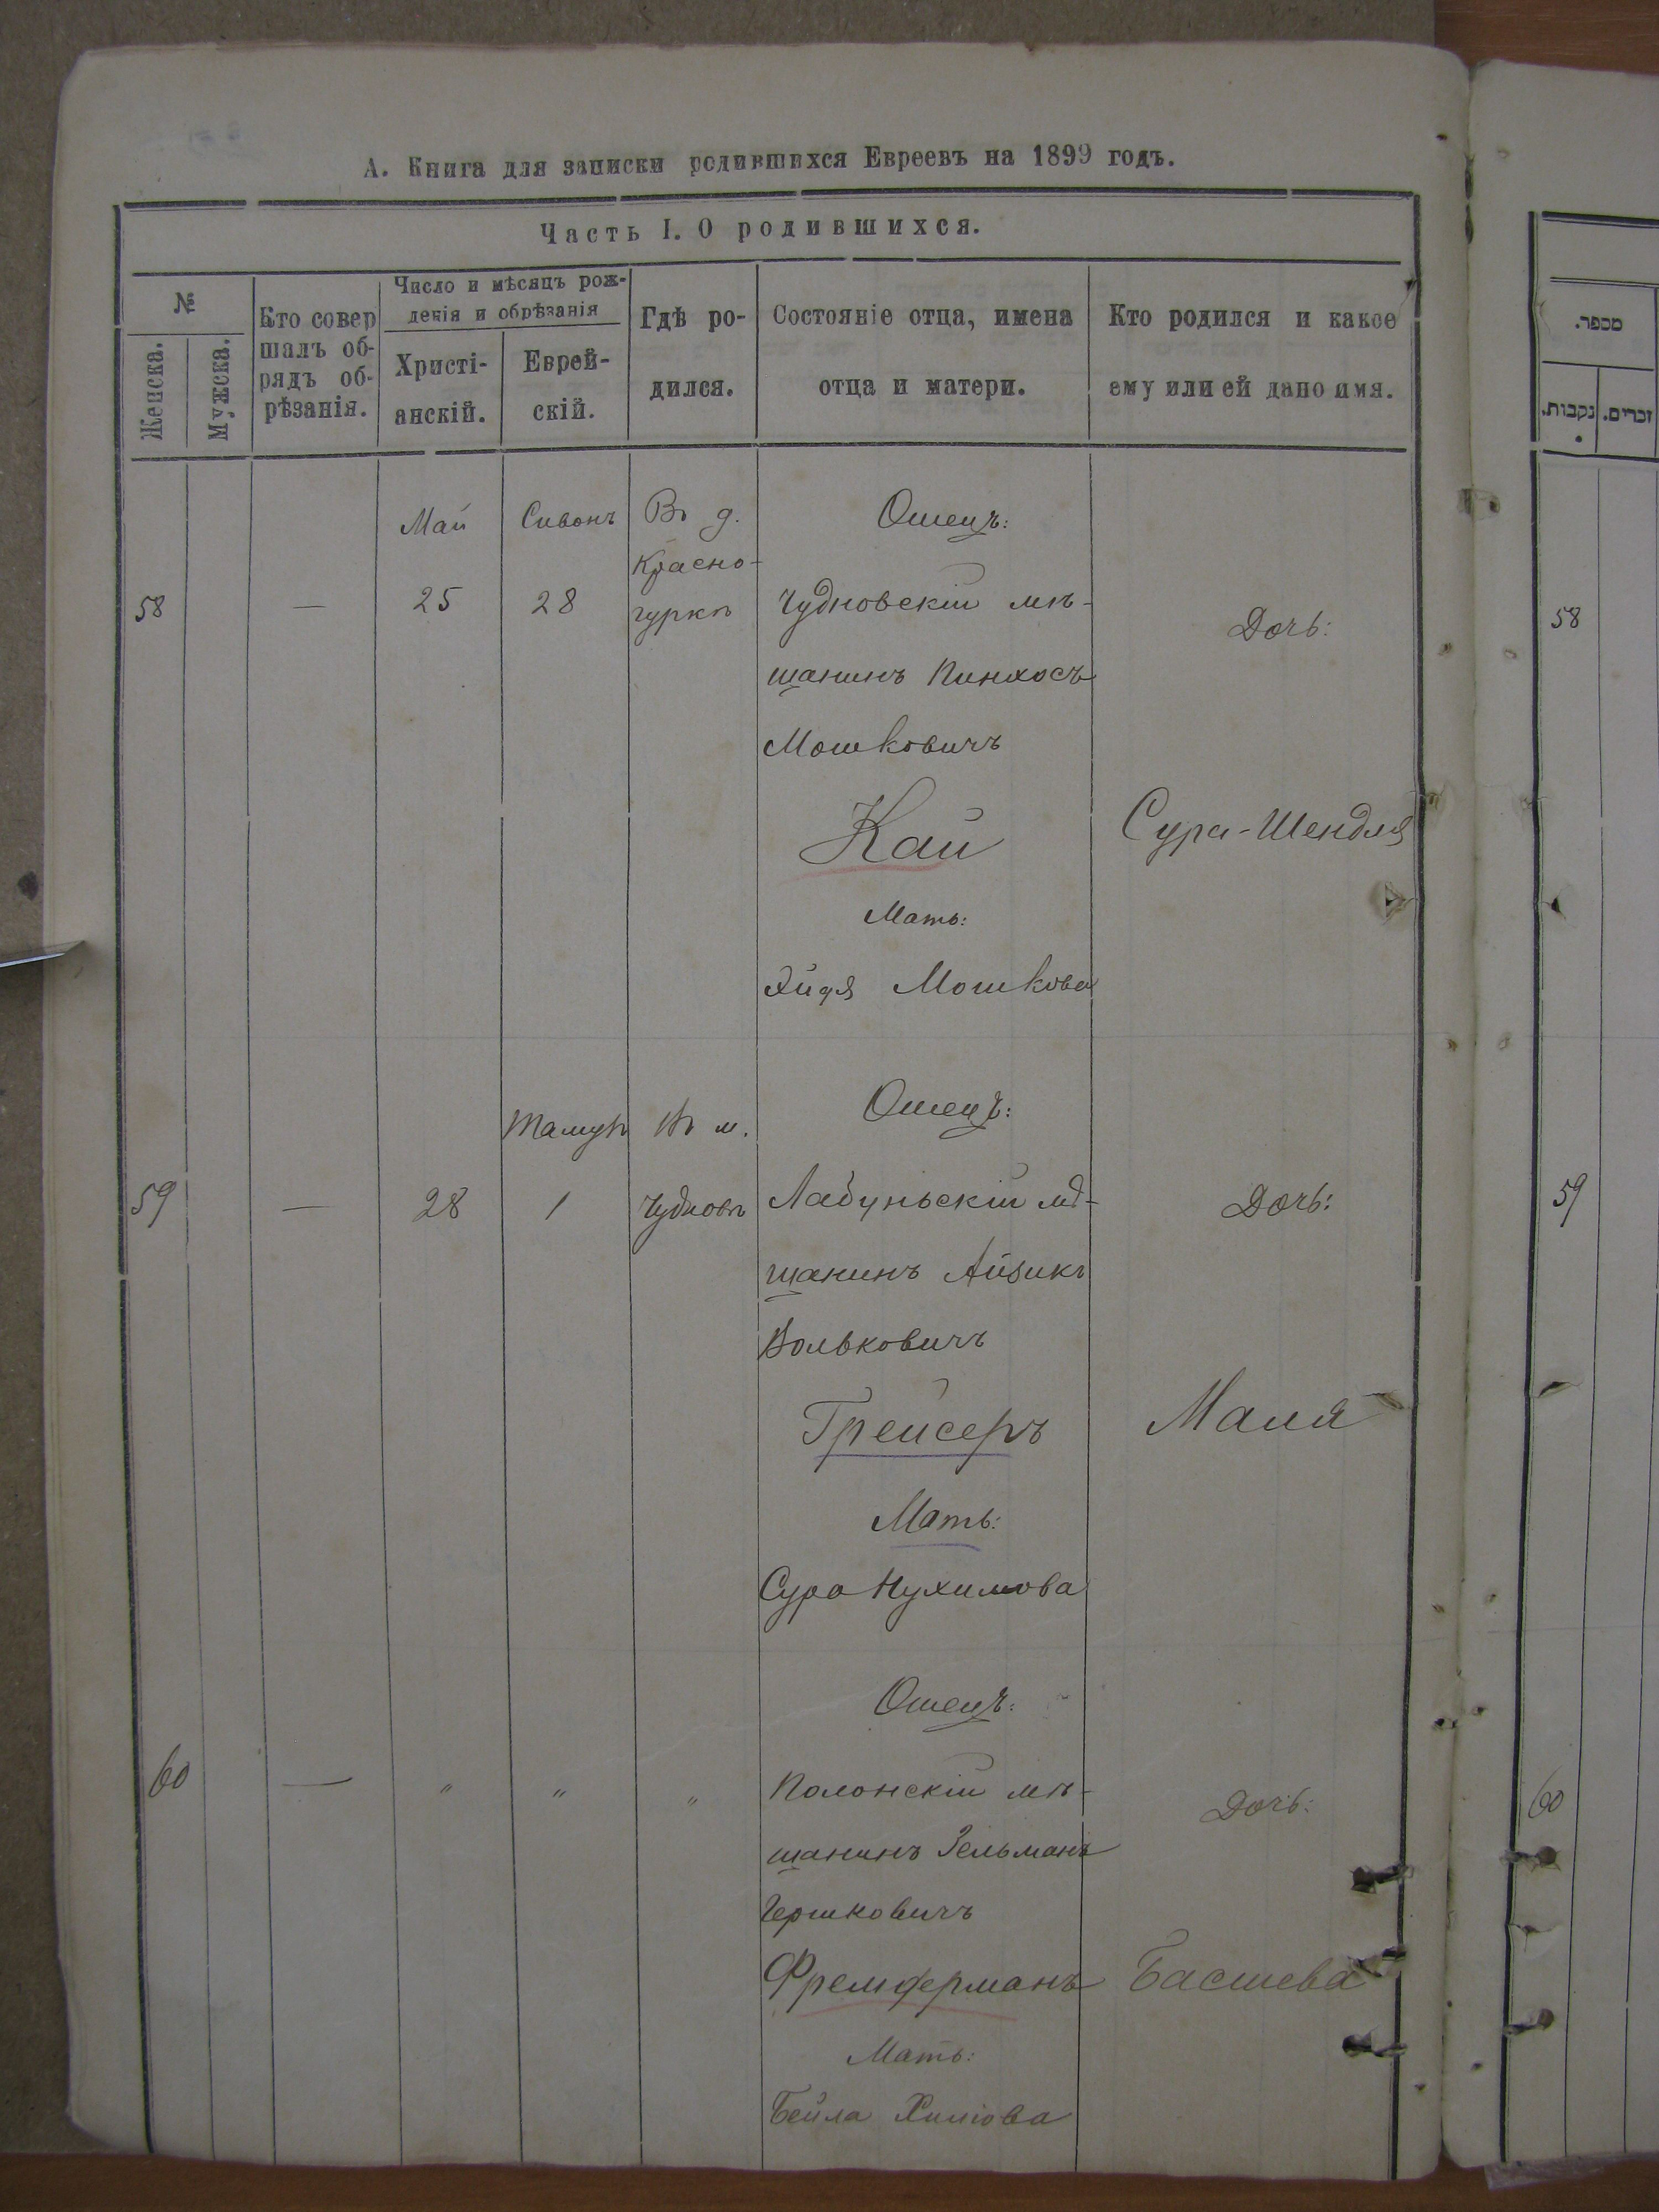 А. Книга для записки родившихся Евреевъ на 1899 годъ.
Часть I. О родившихся.
№
Женска.
Мужска.
Кто совер
шалъ об-
рядъ об-
рѣзанія.
Число и мѣсяцъ рож-
денія и обрѣзанія
Христі-
анскій.
Еврей-
скій.
Гдѣ ро-
дился.
Состояніе отца, имена
отца и матери.
Кто родился и какое
ему или ей дано имя.
מספר.
נקבות.
זכרים.
58
—
Май
25
Сивонъ
28
Въ д.
Красно-
гуркѣ
Отецъ:
Чудновскій мѣ-
щанинъ Пинхосъ
Мошковичъ
Кац
Мать:
Хйдя Мошкова
Дочь:
Сура-Шендля
58
59
—
28
Тамузъ
1
Въ м.
Чудновѣ
Отецъ:
Лабуньскій мѣ-
щанинъ Айзикъ
Вольковичъ
Грейсеръ
Мать:
Сура Нухимова
Дочь:
Маля
59
60
—
"
"
"
Отецъ:
Полонскій мѣ-
щанинъ Зельманъ
Гершковичъ
Фремдерманъ
Мать:
Бейла
Дочь:
Басшева
60